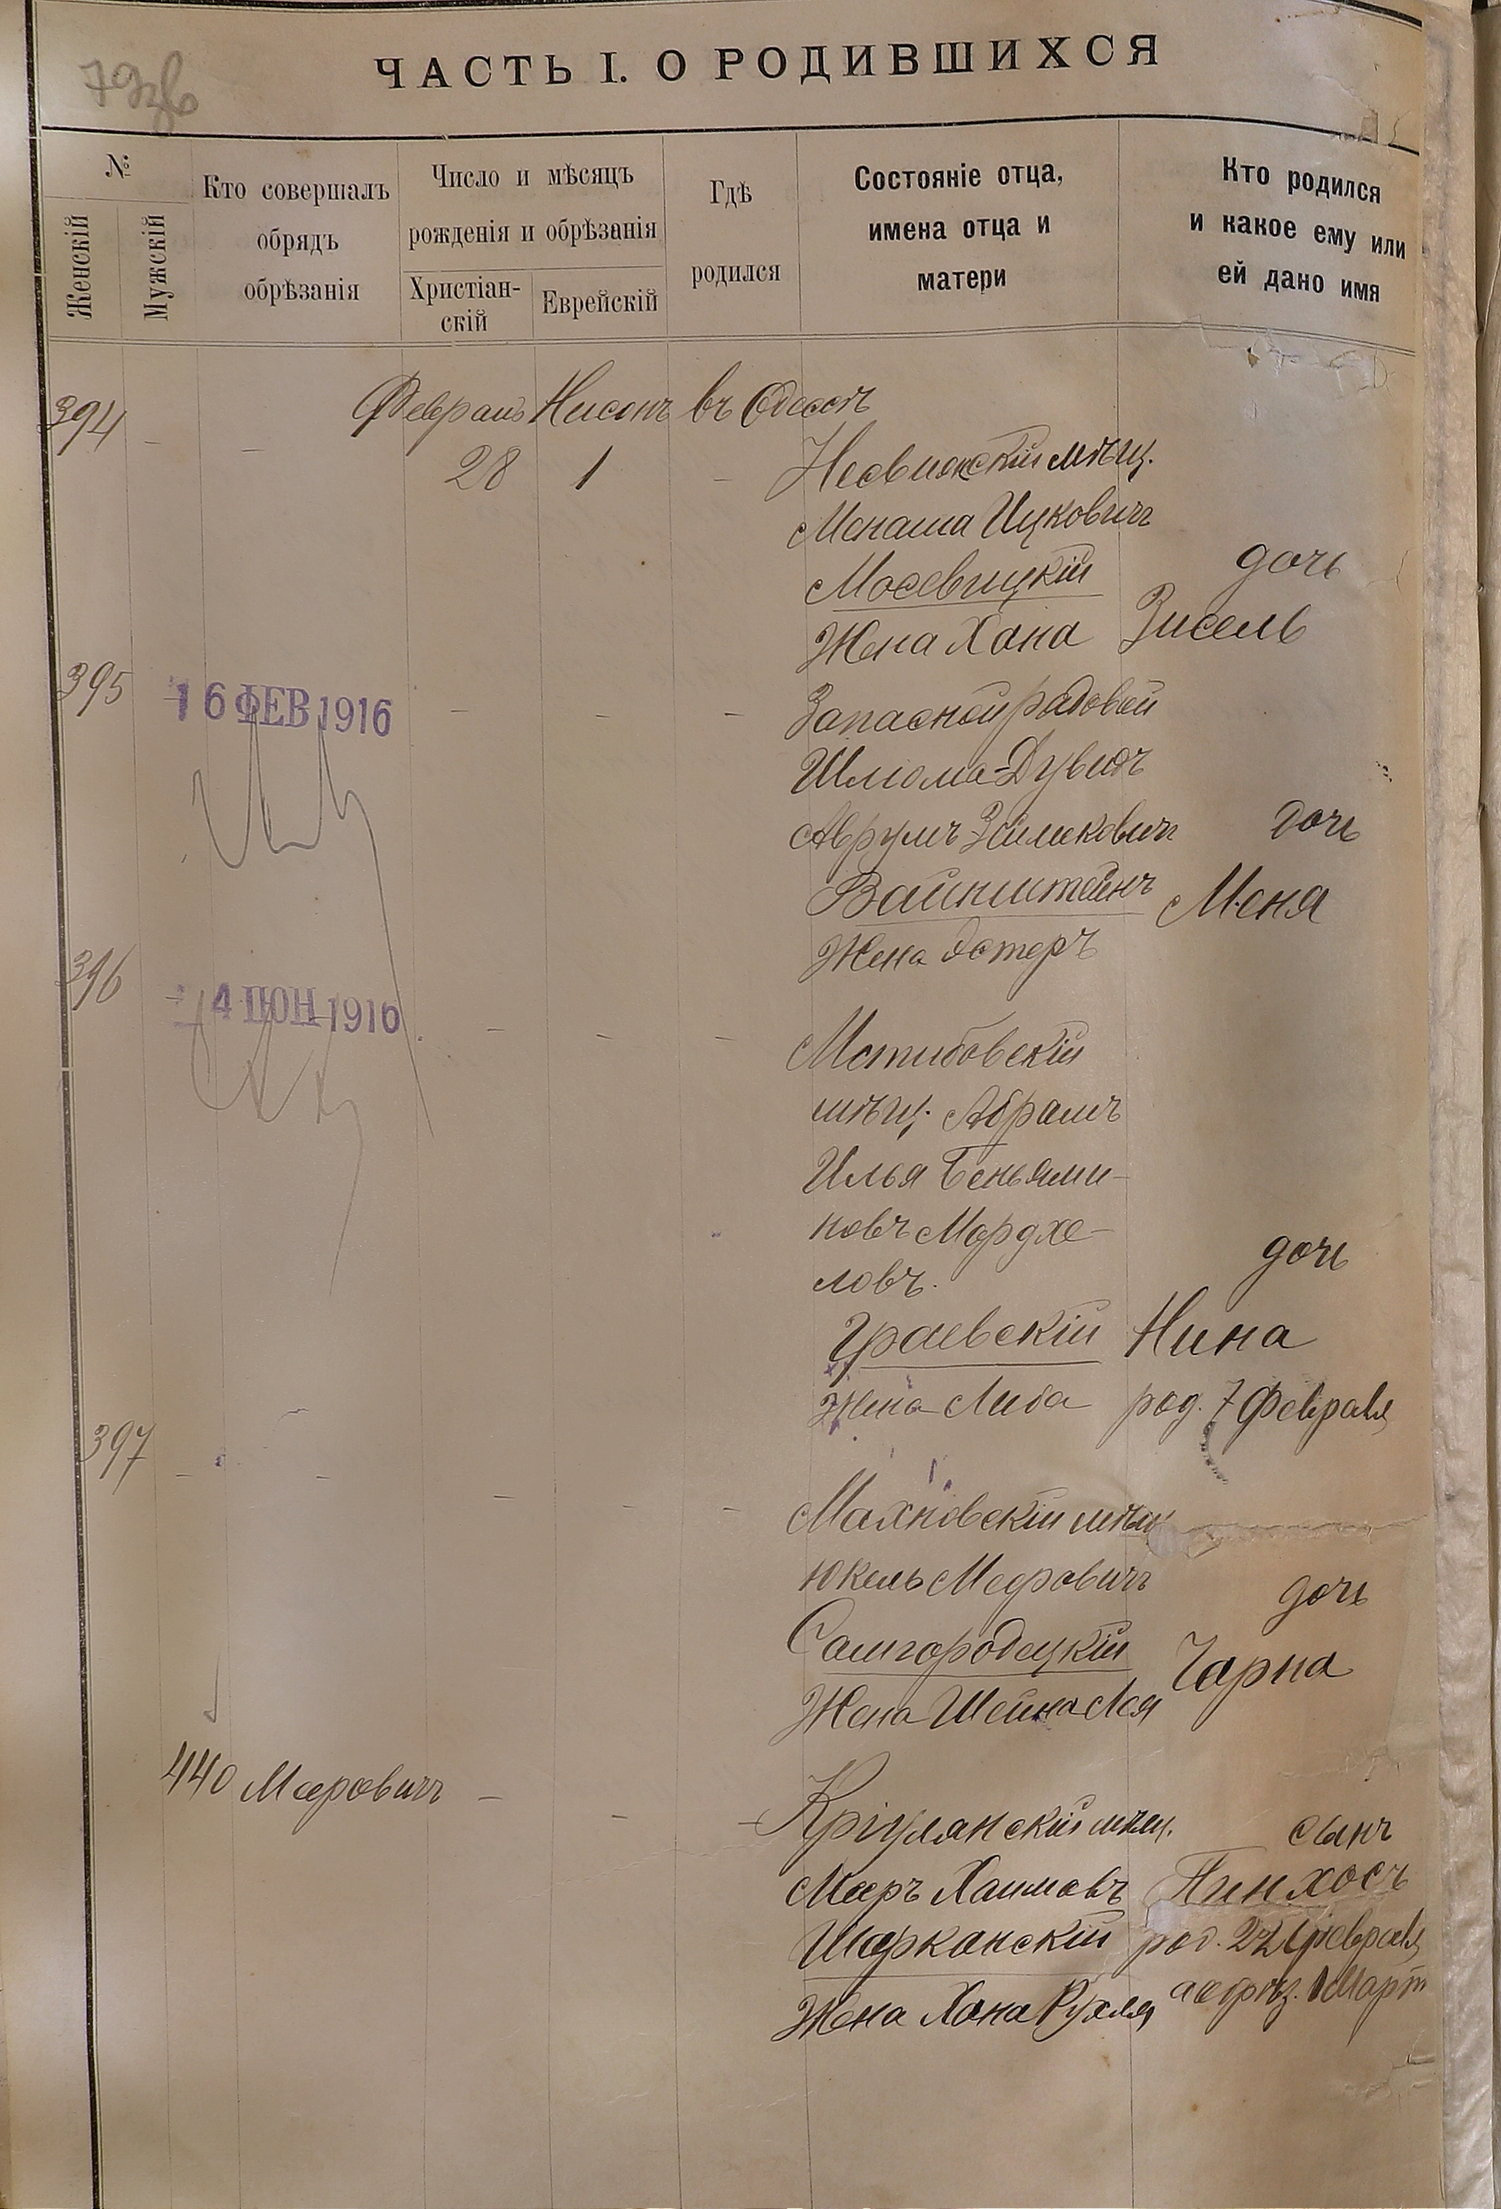 79об
ЧАСТЬ I. О РОДИВШИХСЯ
№
Женскій
Мужскій
Кто совершалъ
обрядъ
обрѣзанія
Число и мѣсяцъ
рожденія и обрѣзанія
Христіан-
скій
Еврейскій
Гдѣ
родился
Состояніе отца,
имена отца и
матери
Кто родился
и какое ему или
ей дано имя
394 Февраль Нисонъ въ Одессѣ
28 1
Несвижскій мѣщ.
Менаша Ицковичъ
Мосевицкій
Жена Хана
дочь
Зисель
395
16 ФЕВ 1916
Запасной рядовой
Шлома-Дувидъ
Аврумъ Зейликовичъ
Вайнштейнъ
Жена Эстеръ
дочь
Меня
396
4 ІЮН 1916
Мстибовскій
мѣщ. Абрамъ
Илья Беньями-
новъ Мордхе-
ловъ.
Граевскій
Жена Либа
дочь
Нина
род. 7 Февраля
397
Махновскій мѣщ.
Юкель Мееровичъ
Самгородецкій
Жена Шейна Лея
дочь
Чарна
440 Меровичъ
Кріулянскій мѣщ.
Мееръ Хаимовъ
Шарканскій
Жена Хана Рухля
сынъ
Пинхосъ
род. 22 Февраля
а обрѣз. 1 Март